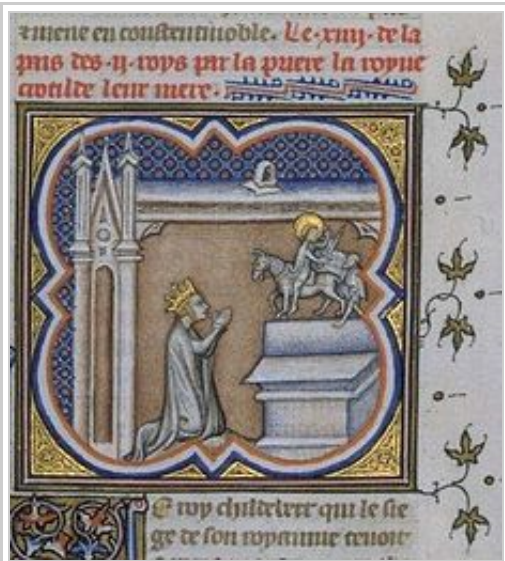 amene en constentinoble. Le .xiiij. de la
pais des .ij. roys par la priere la royne
crotilde leur mere.
E roy childebert qui le sie
ge de son royaume tenoit